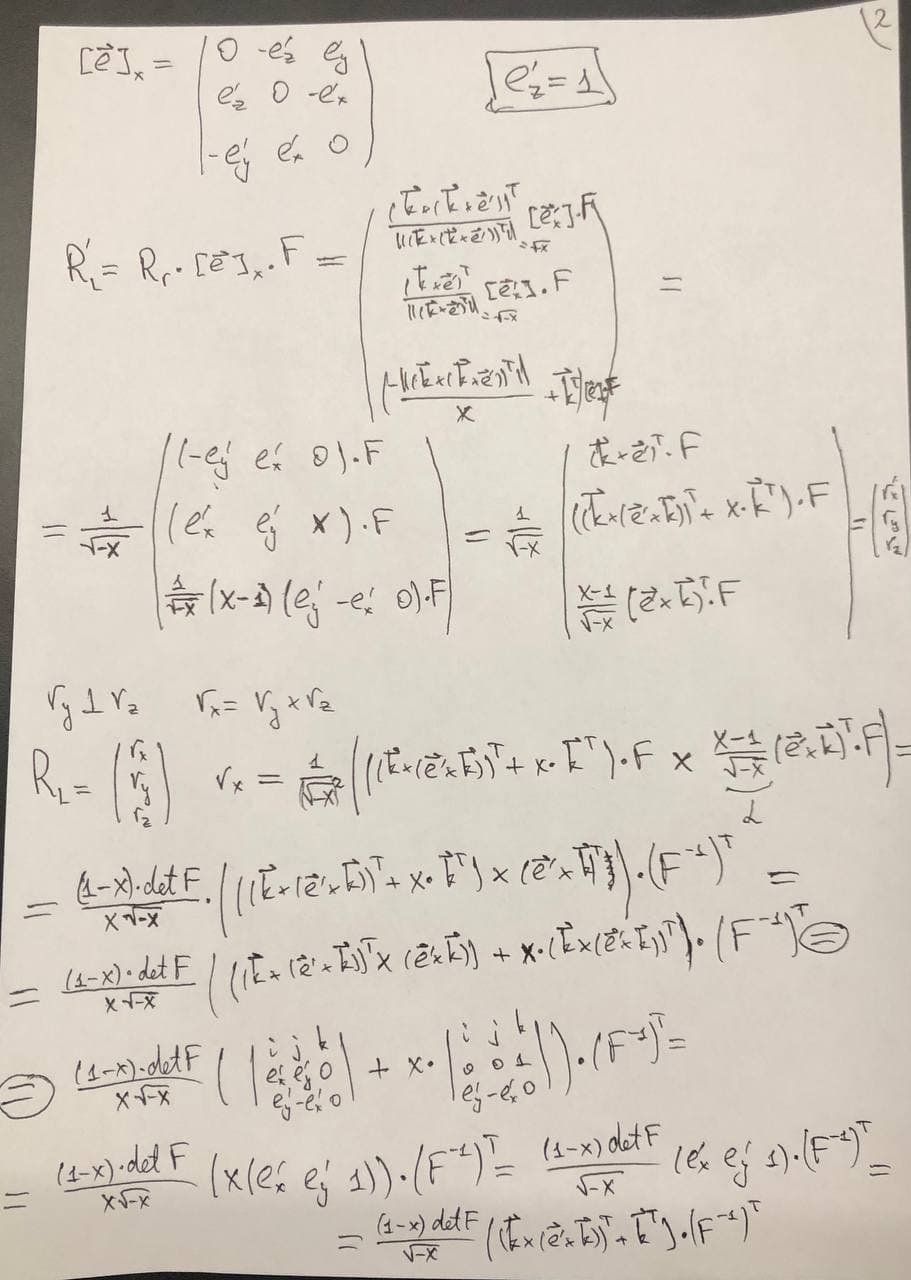 2
[e⃗]ₓ = ( 0 -e'_z e'_y
e'_z 0 -e'_x
-e'_y e'_x 0 )
e'_z = 1
R'_L = R_r · [e⃗]ₓ · F = ( (k⃗×(k⃗×e⃗'))ᵀ / ||(k⃗×(k⃗×e⃗'))ᵀ|| =√-x [e⃗'ₓ]·F
(k⃗×e⃗')ᵀ / ||(k⃗×e⃗')ᵀ|| =√-x [e⃗'ₓ]·F =
(-||(k⃗×(k⃗×e⃗'))ᵀ|| / x + k⃗ᵀ)[e]·F )
= 1/√-x ( (-e'_y e'_x 0)·F
(e'_x e'_y x)·F
1/√-x (x-1)(e'_y -e'_x 0)·F )
= 1/√-x ( (k⃗×e⃗')ᵀ·F
((k⃗×(e⃗'×k⃗))ᵀ + x·k⃗ᵀ)·F
x-1/√-x (e⃗'×k⃗)ᵀ·F )
= ( r'_x
r_y
r_z )
r_y ⊥ r_z r_x = r_y × r_z
R_L = ( r_x
r_y
r_z )
r_x = 1/(√-x)² ( ((k⃗×(e⃗'×k⃗))ᵀ + x·k⃗ᵀ)·F × x-1/√-x (e⃗'×k⃗)ᵀ·F ) =
α
= (1-x)·detF / x√-x · ( ((k⃗×(e⃗'×k⃗))ᵀ + x·k⃗ᵀ) × (e⃗'×k⃗)ᵀ )·(F⁻¹)ᵀ =
= (1-x)·detF / x√-x ( ((k⃗×(e⃗'×k⃗))ᵀ × (e⃗'×k⃗)) + x·(k⃗×(e⃗'×k⃗))ᵀ )·(F⁻¹)ᵀ =
= (1-x)·detF / x√-x ( | i j k
e'_x e'_y 0
e'_y -e'_x 0 | + x· | i j k
0 0 1
e'_y -e'_x 0 | )·(F⁻¹)ᵀ =
= (1-x)·detF / x√-x (x(e'_x e'_y 1))·(F⁻¹)ᵀ = (1-x)detF / √-x (e'_x e'_y 1)·(F⁻¹)ᵀ =
= (1-x)detF / √-x ((k⃗×(e⃗'×k⃗))ᵀ + k⃗ᵀ)·(F⁻¹)ᵀ